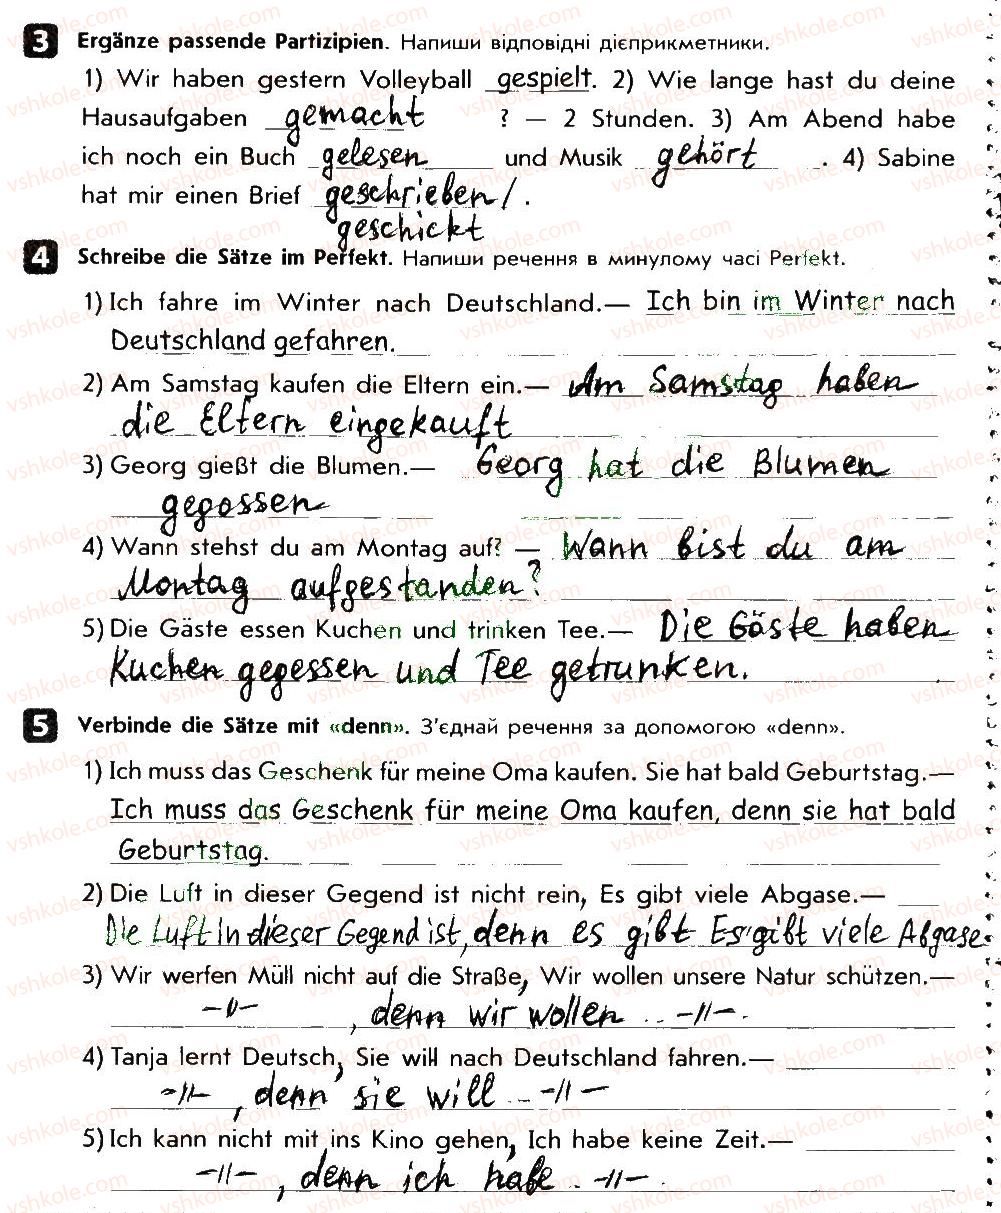 3 Ergänze passende Partizipien. Напиши відповідні дієприкметники.
1) Wir haben gestern Volleyball gespielt. 2) Wie lange hast du deine
Hausaufgaben gemacht ? — 2 Stunden. 3) Am Abend habe
ich noch ein Buch gelesen und Musik gehört . 4) Sabine
hat mir einen Brief geschrieben/ .
geschickt
4 Schreibe die Sätze im Perfekt. Напиши речення в минулому часі Perfekt.
1) Ich fahre im Winter nach Deutschland.— Ich bin im Winter nach
Deutschland gefahren.
2) Am Samstag kaufen die Eltern ein.— Am Samstag haben
die Eltern eingekauft
3) Georg gießt die Blumen.— Georg hat die Blumen
gegossen
4) Wann stehst du am Montag auf? — Wann bist du am
Montag aufgestanden?
5) Die Gäste essen Kuchen und trinken Tee.— Die Gäste haben
Kuchen gegessen und Tee getrunken.
5 Verbinde die Sätze mit «denn». З'єднай речення за допомогою «denn».
1) Ich muss das Geschenk für meine Oma kaufen. Sie hat bald Geburtstag.—
Ich muss das Geschenk für meine Oma kaufen, denn sie hat bald
Geburtstag.
2) Die Luft in dieser Gegend ist nicht rein, Es gibt viele Abgase.—
Die Luft in dieser Gegend ist, denn es gibt Es gibt viele Abgase.
3) Wir werfen Müll nicht auf die Straße, Wir wollen unsere Natur schützen.—
–//– , denn wir wollen .. –//–.
4) Tanja lernt Deutsch, Sie will nach Deutschland fahren.—
–//– , denn sie will .. –//–
5) Ich kann nicht mit ins Kino gehen, Ich habe keine Zeit.—
–//– , denn ich habe . –//–.